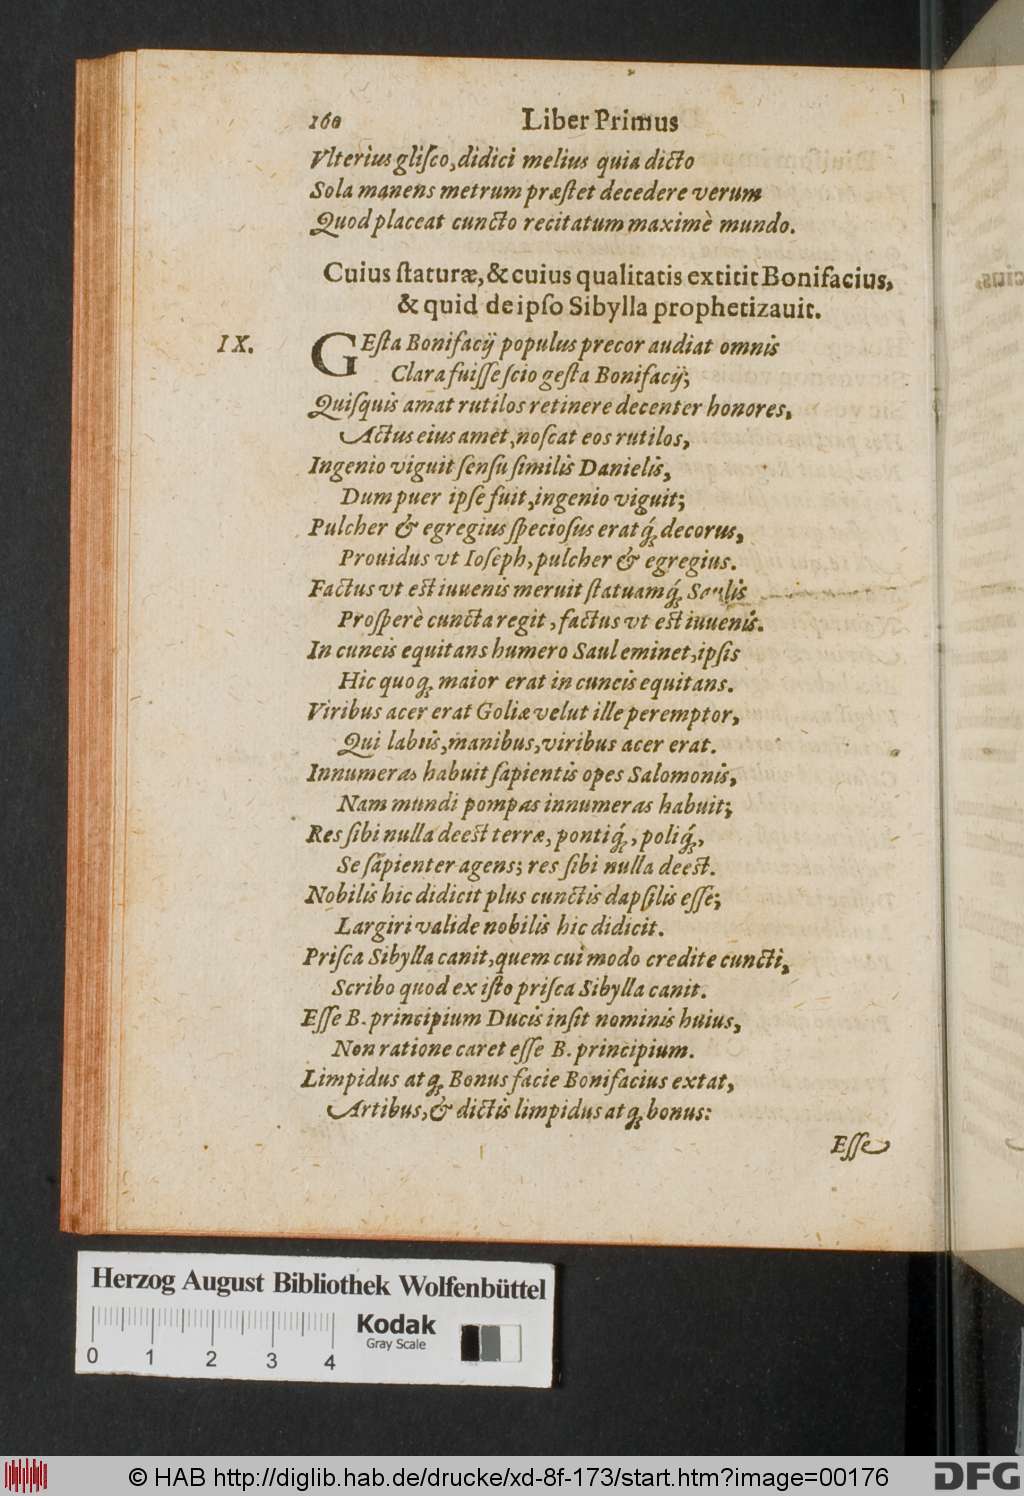 160 Liber Primus
Vlterius gliſco, didici melius quia dicto
Sola manens metrum præſtet decedere verum
Quod placeat cuncto recitatum maximè mundo.
Cuius ſtaturæ, & cuius qualitatis extitit Bonifacius,
& quid de ipſo Sibylla prophetizauit.
IX. GEſta Bonifacij populus precor audiat omnis
Clara fuiſſe ſcio geſta Bonifacij;
Quiſquis amat rutilos retinere decenter honores,
Actus eius amet, noſcat eos rutilos,
Ingenio viguit ſenſu ſimilis Danielis,
Dum puer ipſe fuit, ingenio viguit;
Pulcher & egregius ſpecioſus erat q́; decorus,
Prouidus vt Ioſeph, pulcher & egregius.
Factus vt eſt iuuenis meruit ſtatuamq́; Saulis
Proſperè cuncta regit, factus vt eſt iuuenis.
In cuneis equitans humero Saul eminet, ipſis
Hic quoq; maior erat in cuneis equitans.
Viribus acer erat Goliæ velut ille peremptor,
Qui labiis, manibus, viribus acer erat.
Innumeras habuit ſapientis opes Salomonis,
Nam mundi pompas innumeras habuit;
Res ſibi nulla deeſt terræ, pontiq́;, poliq́;,
Se ſapienter agens; res ſibi nulla deeſt.
Nobilis hic didicit plus cunctis dapſilis eſſe;
Largiri valide nobilis hic didicit.
Priſca Sibylla canit, quem cui modo credite cuncti,
Scribo quod ex iſto priſca Sibylla canit.
Eſſe B. principium Ducis inſit nominis huius,
Non ratione caret eſſe B. principium.
Limpidus atq; Bonus facie Bonifacius extat,
Artibus, & dictis limpidus atq; bonus:
Eſſe
Herzog August Bibliothek Wolfenbüttel
Kodak
Gray Scale
0 1 2 3 4
© HAB http://diglib.hab.de/drucke/xd-8f-173/start.htm?image=00176
DFG